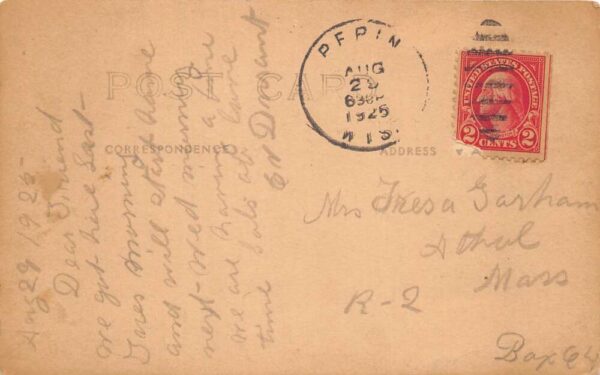 POST CARD
CORRESPONDENCE
ADDRESS
PEPIN
AUG
29
630P
1925
WIS.
UNITED STATES POSTAGE
2 CENTS 2
Aug 29 1925
Dear Friend
we got here last
Tues morning
and will start home
next Wed morning
we are having a fine
time lots of love
Mrs Tresa Gorham
Athol
Mass
R-2
Box 64